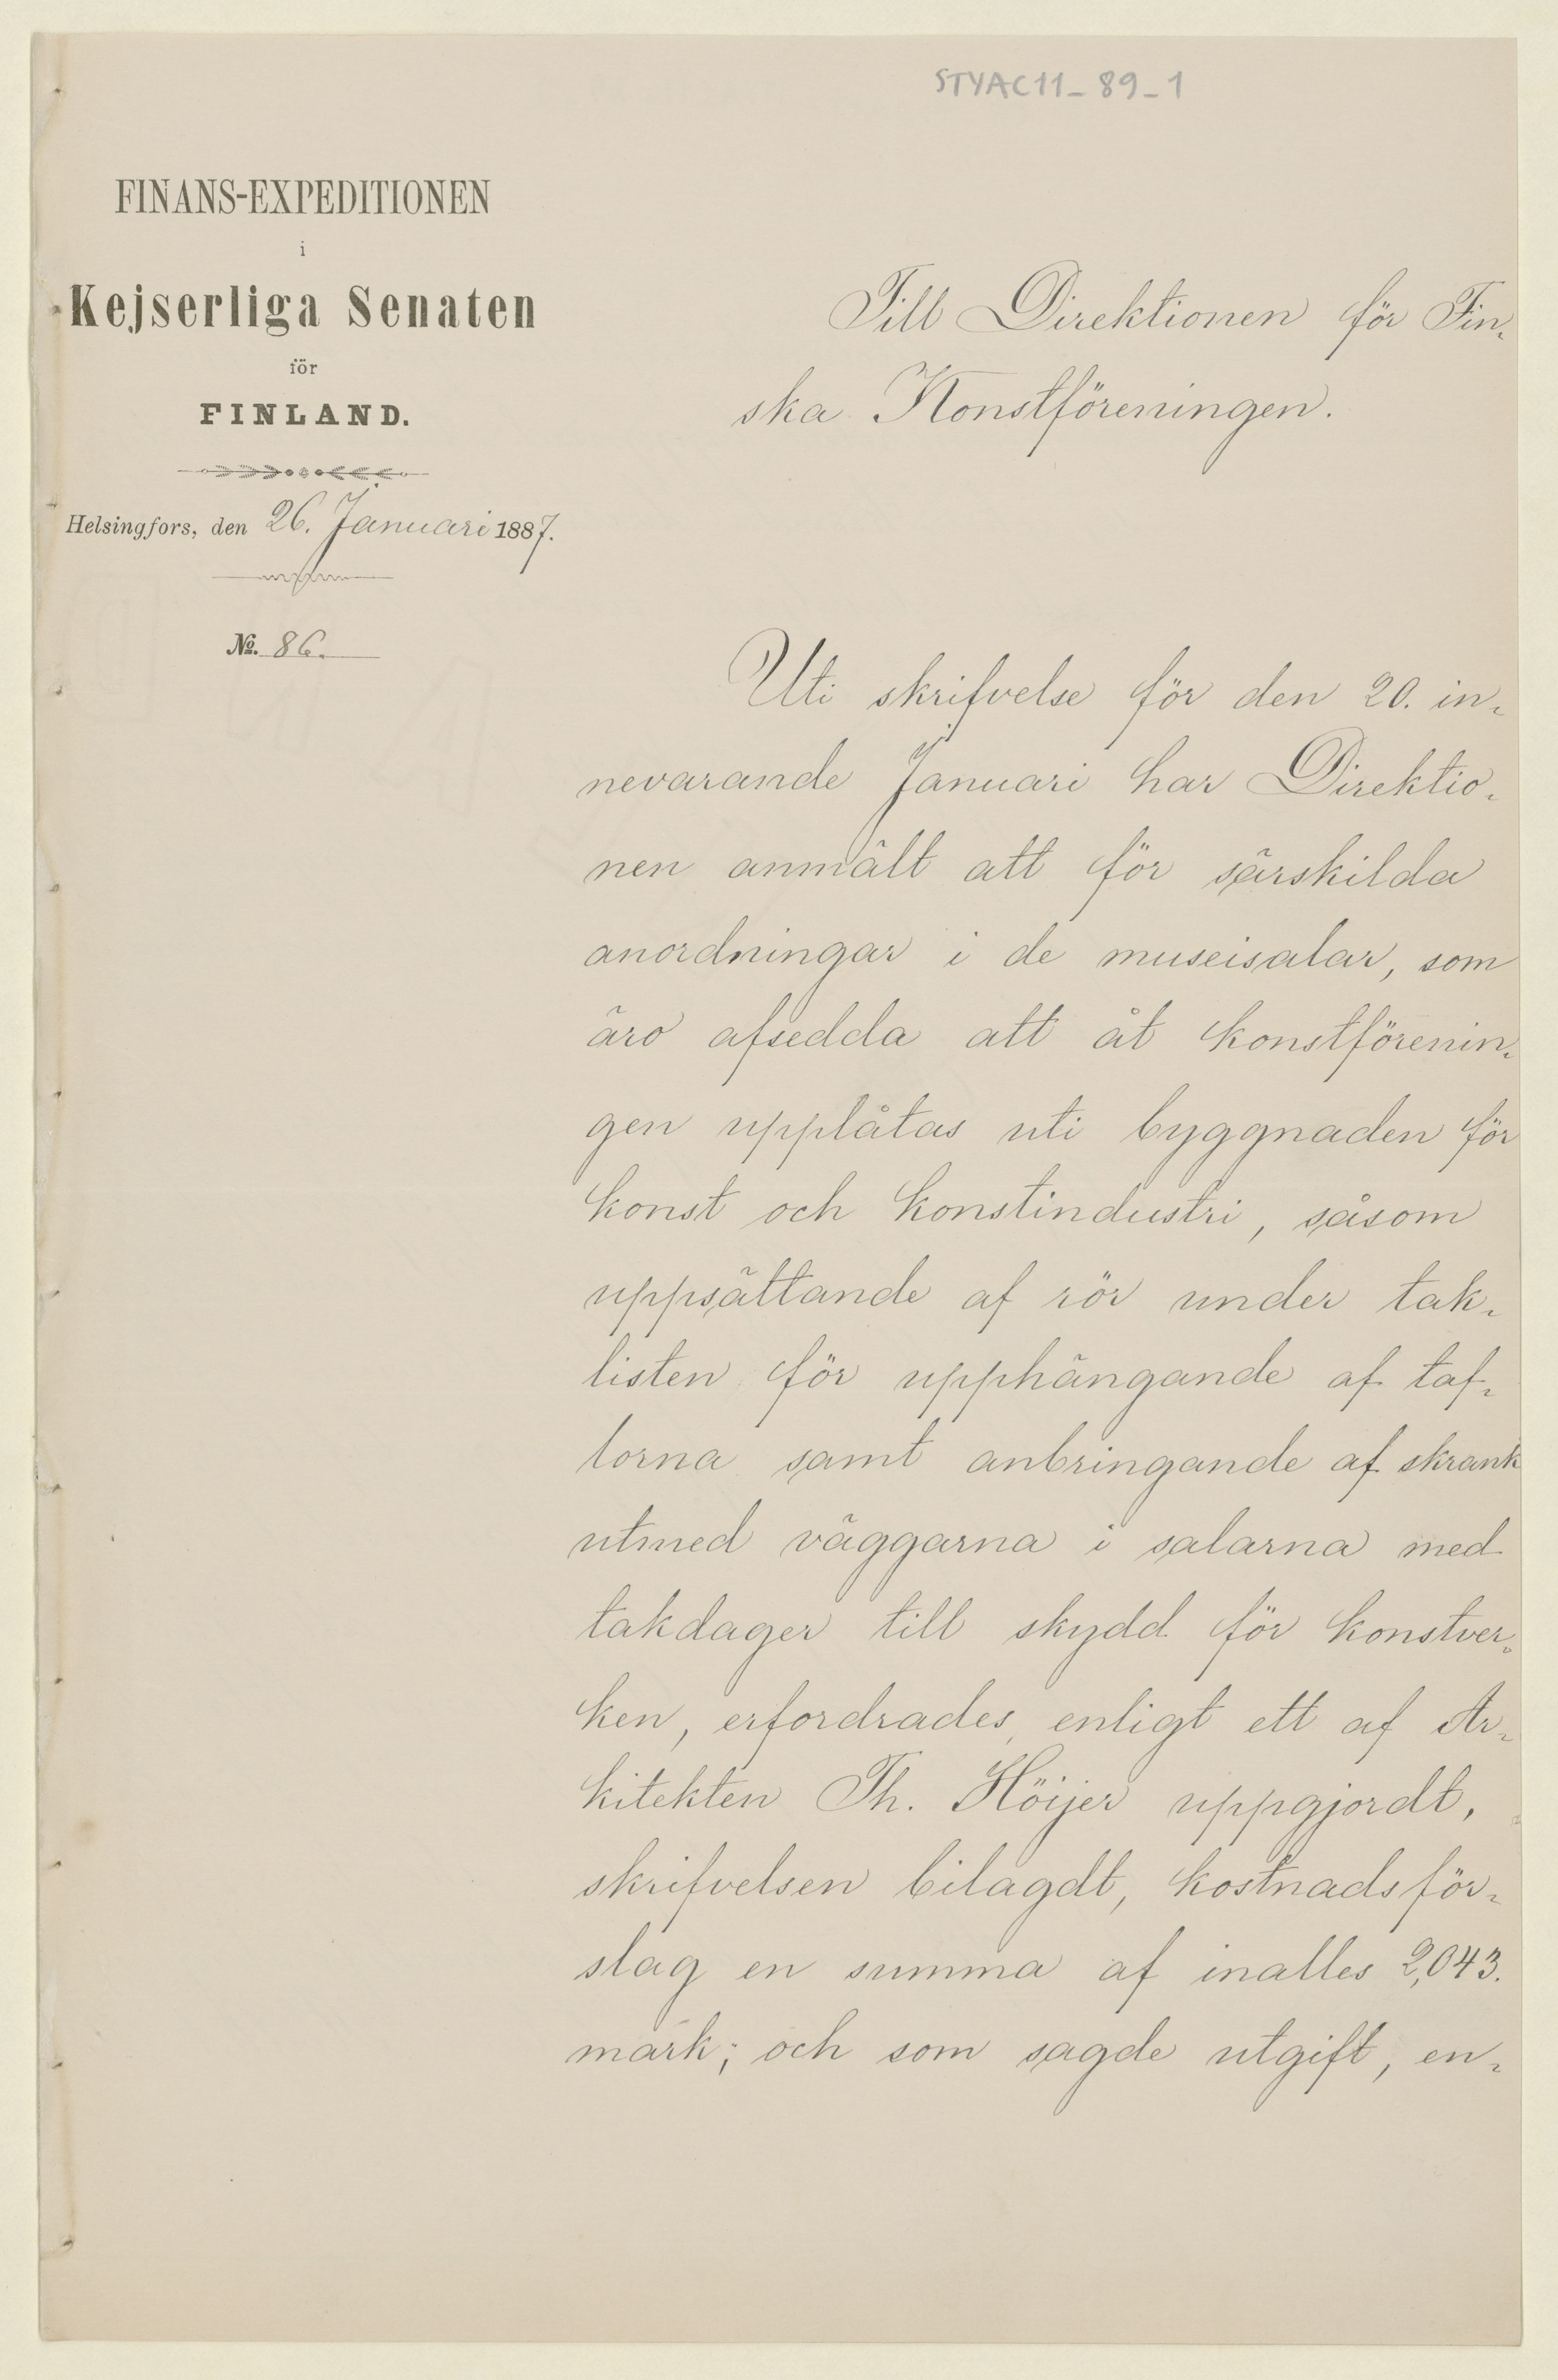 STYAC11_89_1
FINANS-EXPEDITIONEN
i
Kejserliga Senaten
för
FINLAND.
Helsingfors, den 26. Januari 1887.
No. 86.
Till Direktionen för Fin-
ska Konstföreningen.
Uti skrifvelse för den 20. in-
nevarande Januari har Direktio-
nen anmält att för särskilda
anordningar i de museisalar, som
äro afsedda att åt konstförenin-
gen upplåtas uti byggnaden för
konst och konstindustri, såsom
uppsättande af rör under tak-
listen för upphängande af taf-
lorna samt anbringande af skrank
utmed väggarna i salarna med
takdager till skydd för konstver-
ken, erfordrades, enligt ett af Ar-
kitekten Th. Höijer uppgjordt,
skrifvelsen bilagdt, kostnadsför-
slag en summa af inalles 2,043.
mark; och som sagde utgift, en-